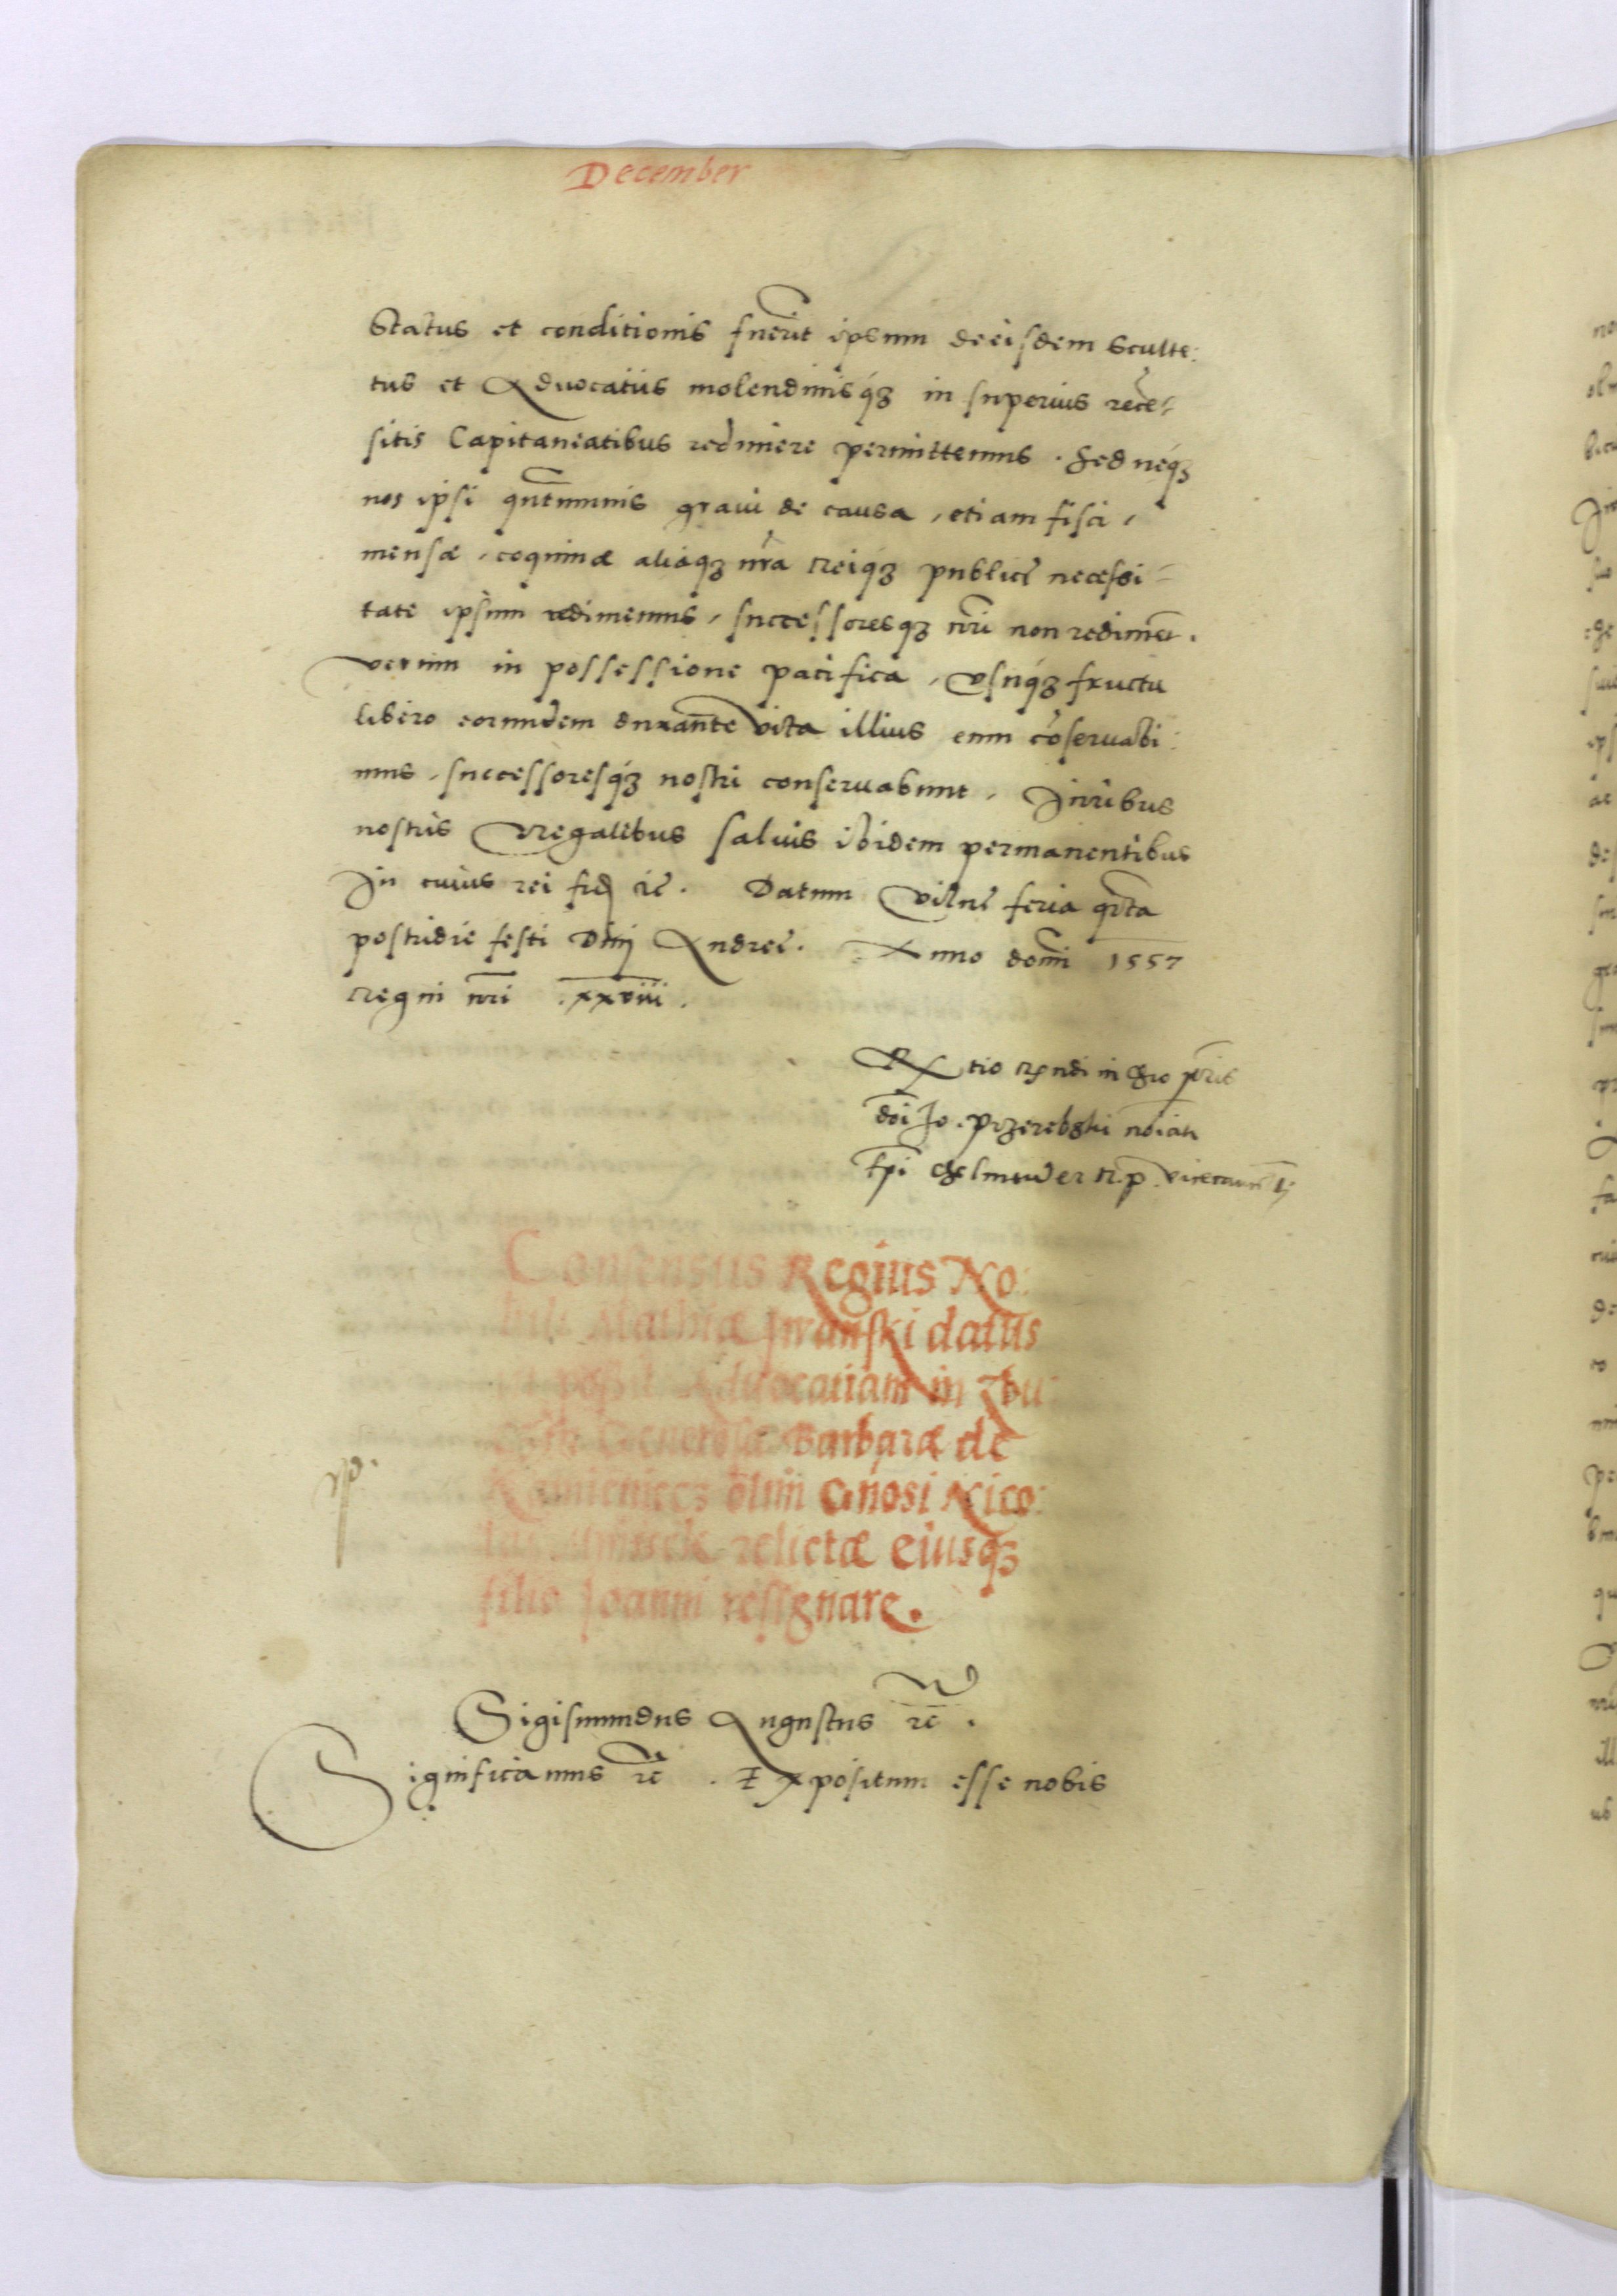 December
Status et conditionis fuerit ipsum de eisdem Sculte:
tus et Advocatiis molendinisq3 in superius rece-
sitis Capitaneatibus redimere permittemus. Sed neq3
nos ipsi qntumuis graui de causa, etiam fisci,
mensæ, coquinæ aliaq3 nra Reiq3 publicę necessi-
tate ipsum redimemus, successoresq3 nri non rediment.
verum in possessione pacifica, vsuq3 fructu
libero eorundem durante vita illius eum coseruabi:
mus, successoresq3 nostri conseruabunt. Iuribus
nostris Regalibus saluis ibidem permanentibus
In cuius rei fidẽ rc. Datum Vilnę feria qrta
postridie festi Diui Andreę. Anno domi 1557
Regni nri .xxviii.
Rdi in Chro pris
dni Jo. Przerebski noiati
Epi Chelmen R. P. Vicecancͣ
Consensus Regius No:
bili Mathiæ Iwanski datus
Advocatiam in Zbu
Generosæ Barbaræ de
Kamieniecz olim Gnosi Nico:
lai relictæ eiusq3
filio Joanni resignare.
Sigismundus Augustus rc.
Significamus rc. Expositum esse nobis